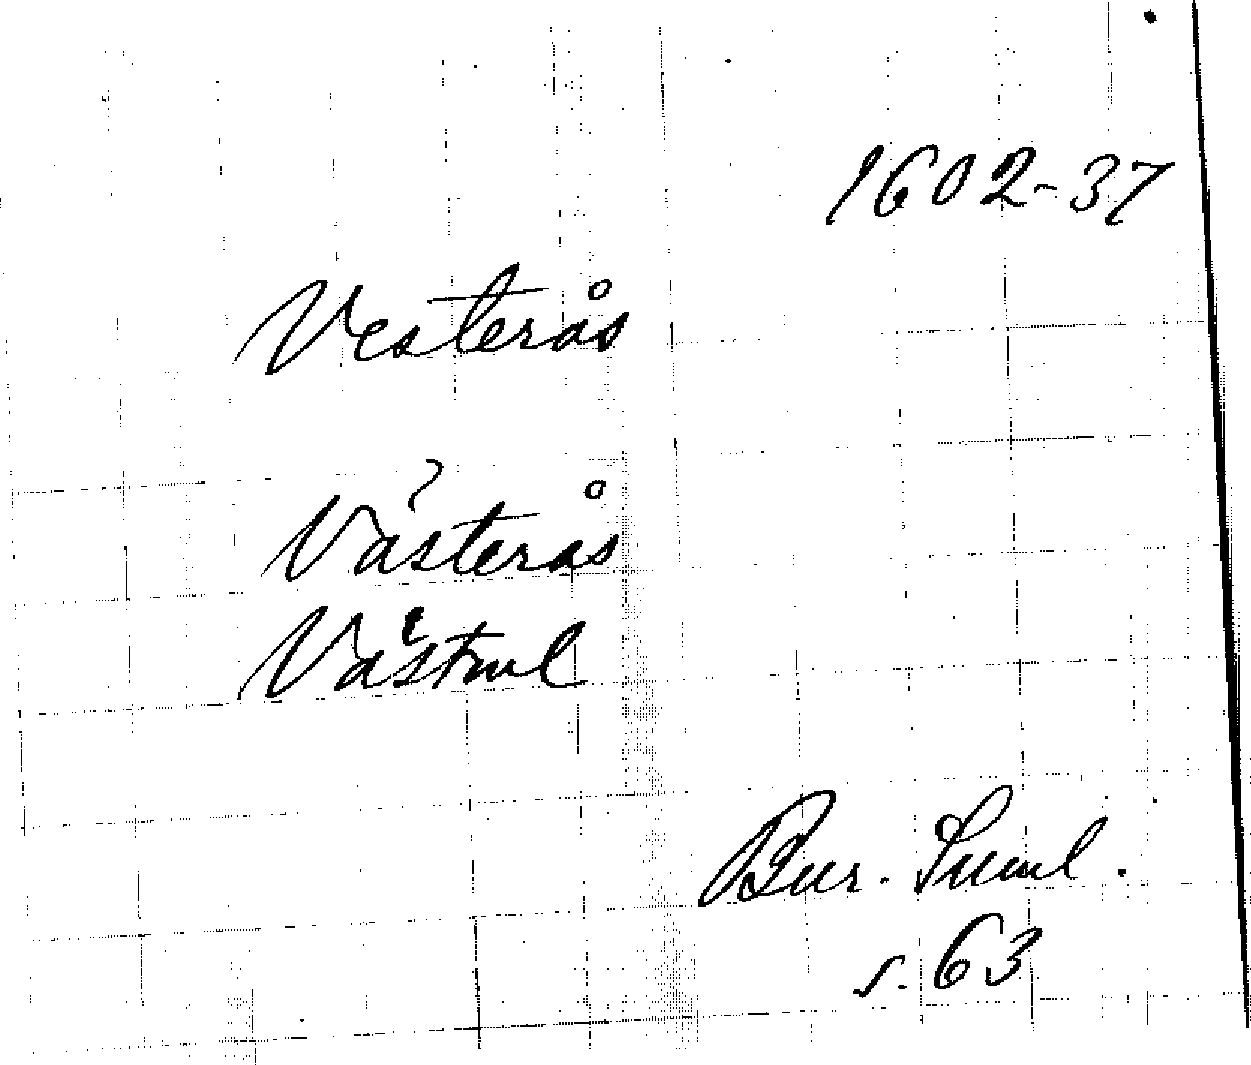 1602-37
Vesterås
Västerås
Västml
Bur. Suml.
s. 63